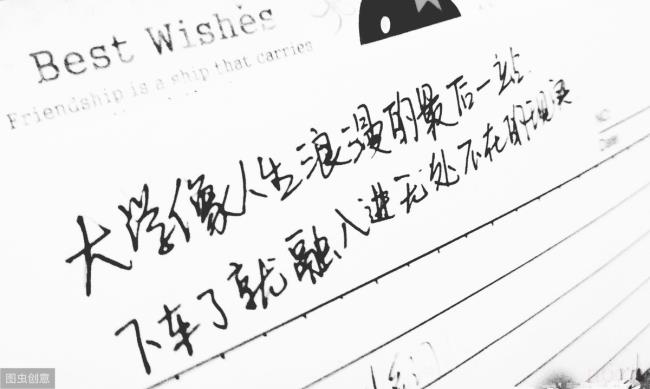 Best Wishes
Friendship is a ship that carries
大学像人生浪漫的最后一站
下车了就融入进无处不在的现实
图虫创意